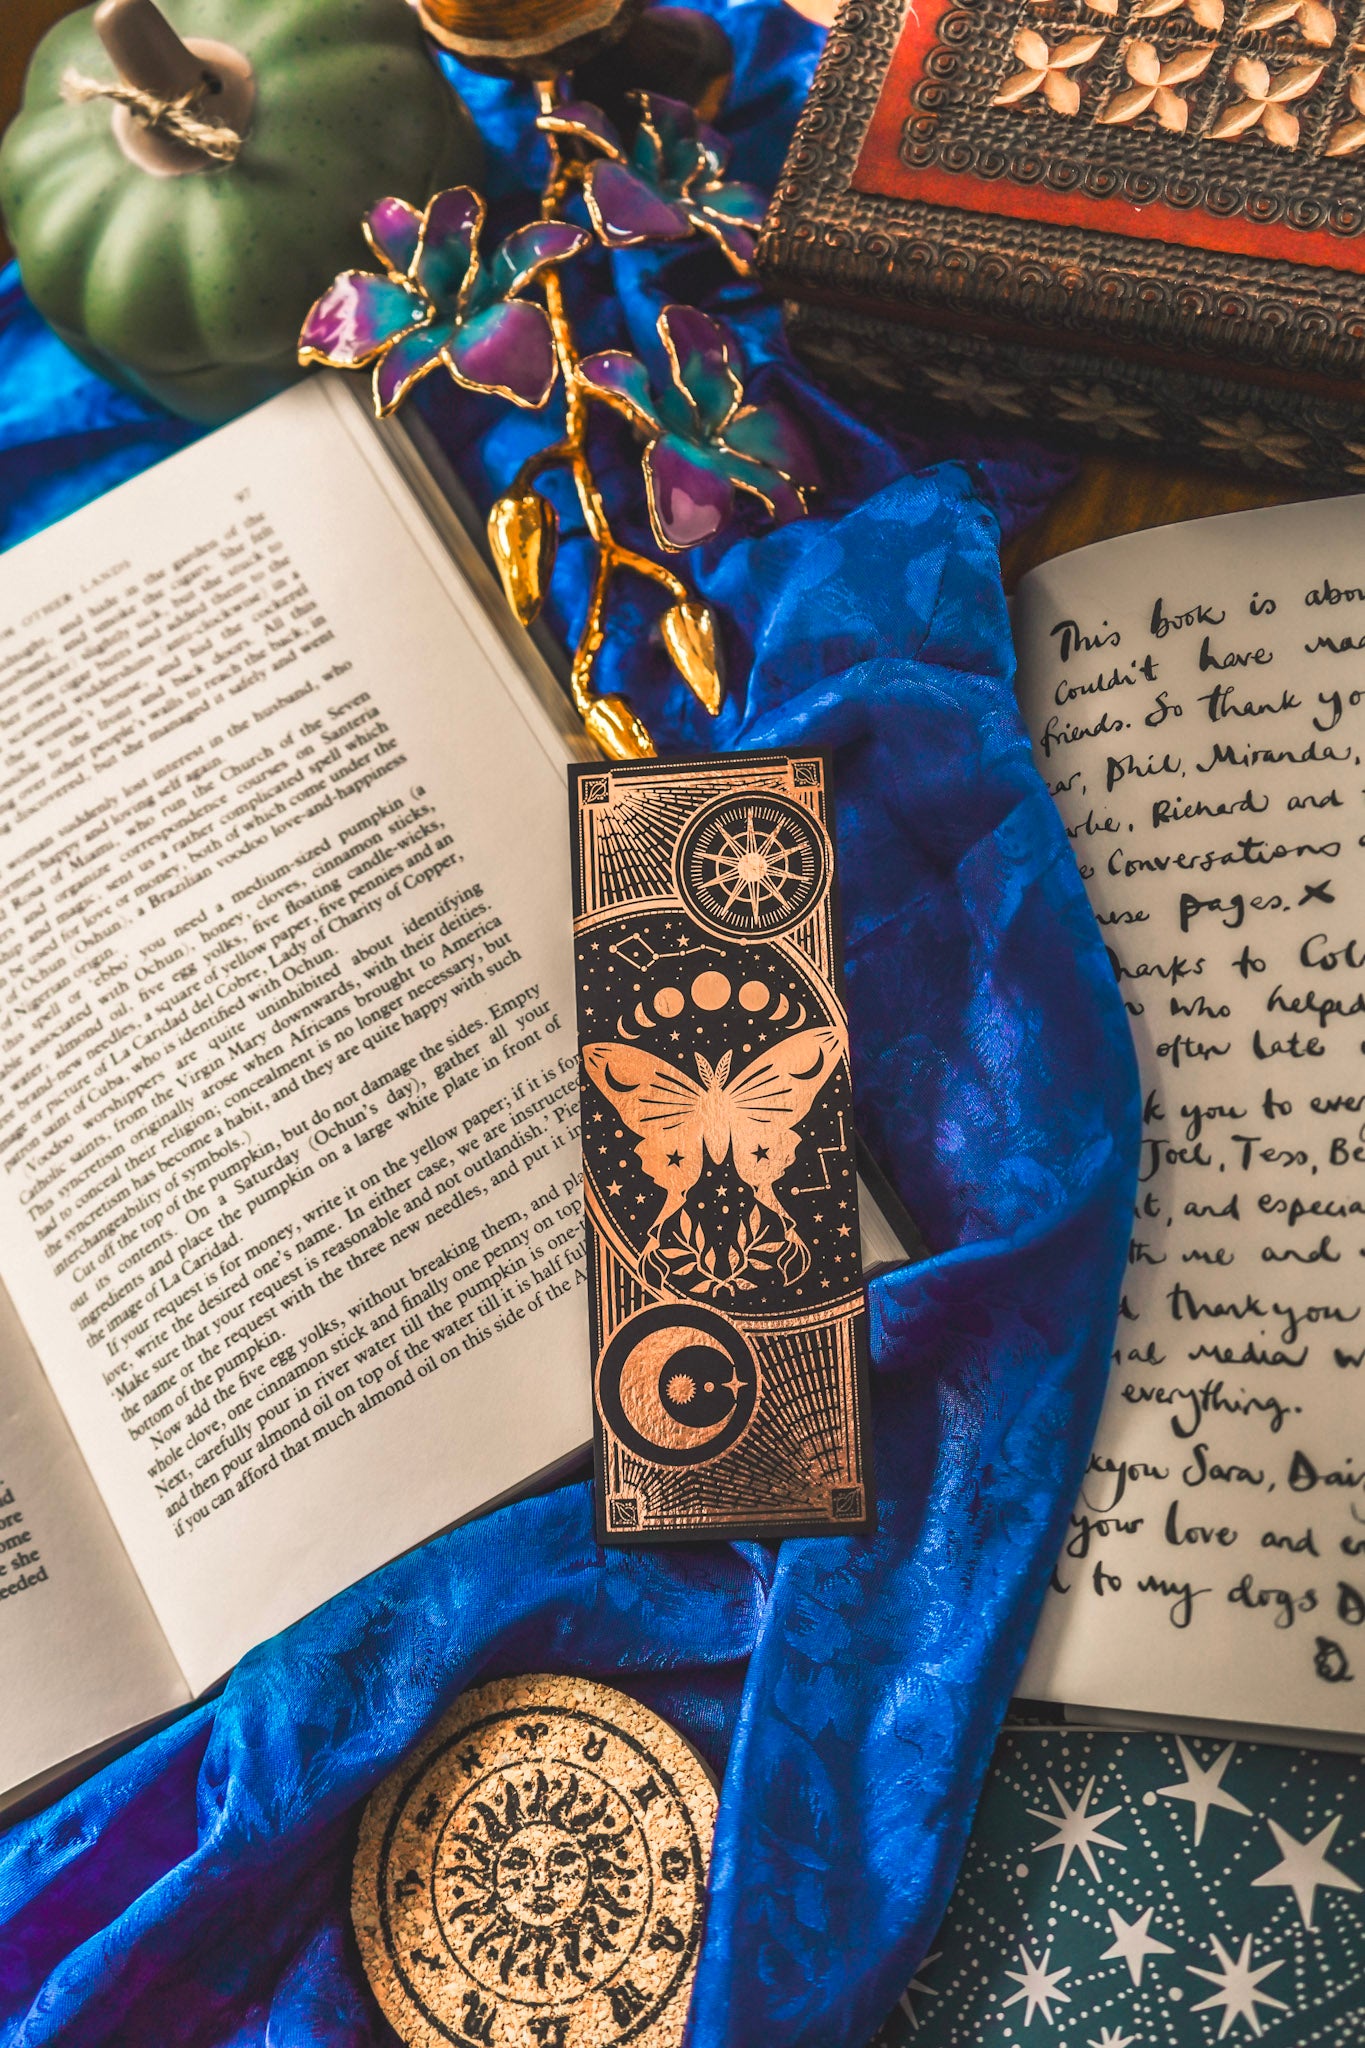 97
OTHER LANDS
and hide in the garden of the
and smoke the cigars. She felt
slightly sick, but the
her own cigar butts and added them to the
scattered widdershins (anti-clockwise) in a
house, and had the cockerel
to the front and back doors. All this
other people's walls to reach the back, in
discovered, but she managed it safely and went
woman suddenly lost interest in the husband, who
happy and loving self again.
Rosa of Miami, who run the Church of the Seven
and organize correspondence courses on Santeria
magic, sent us a rather complicated spell which
be used for love or money, both of which come under the
of Ochun (Oshun), a Brazilian voodoo love-and-happiness
of Nigerian origin.
this spell or 'ebbo' you need a medium-sized pumpkin (a
associated with Ochun), honey, cloves, cinnamon sticks,
water, almond oil, five egg yolks, five floating candle-wicks,
brand-new needles, a square of yellow paper, five pennies and an
image or picture of La Caridad del Cobre, Lady of Charity of Copper,
patron saint of Cuba, who is identified with Ochun.
Voodoo worshippers are quite uninhibited about identifying
Catholic saints, from the Virgin Mary downwards, with their deities.
This syncretism originally arose when Africans brought to America
had to conceal their religion; concealment is no longer necessary, but
the syncretism has become a habit, and they are quite happy with such
interchangeability of symbols.)
Cut off the top of the pumpkin, but do not damage the sides. Empty
out its contents. On a Saturday (Ochun's day), gather all your
ingredients and place the pumpkin on a large white plate in front of
the image of La Caridad.
If your request is for money, write it on the yellow paper; if it is for
love, write the desired one's name. In either case, we are instructed
'Make sure that your request is reasonable and not outlandish.'
the name or the request with the three new needles, and put it in
bottom of the pumpkin.
Now add the five egg yolks, without breaking them, and
whole clove, one cinnamon stick and finally one penny on top
Next, carefully pour in river water till the pumpkin is
and then pour almond oil on top of the water till it is half full
if you can afford that much almond oil on this side of the
ore
ome
she
eeded
This book is
couldn't have
friends. So thank
Phil, Miranda,
Richard and
Conversations
pages. x
to
who helped
often late
you to
Joel, Tess,
and
me and
thankyou
media
everything.
Sara,
your love and
to my dogs